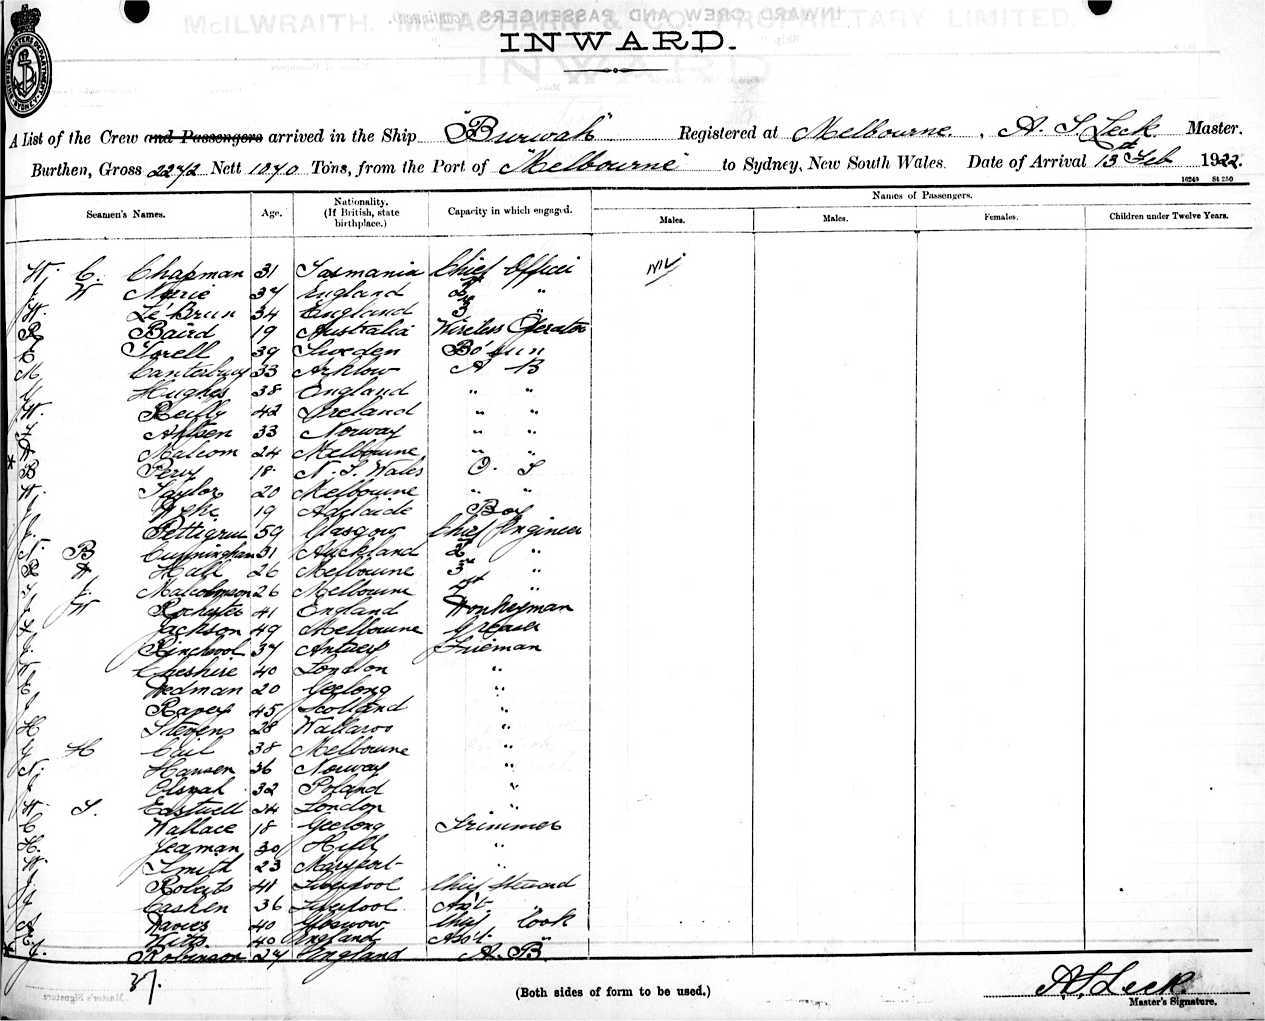 INWARD.
A List of the Crew and Passengers arrived in the Ship "Burwah" Registered at Melbourne, A. S. Leck Master.
Burthen, Gross 2272 Nett 1070 Tons, from the Port of "Melbourne" to Sydney, New South Wales. Date of Arrival 13th Feb 1922.
10249 St 250
Seamen's Names. Age. Nationality. (If British, state birthplace.) Capacity in which engaged. Names of Passengers.
Males. Males. Females. Children under Twelve Years.
W. C. Chapman 31 Tasmania Chief Officer Nil
J. W 37 England 2nd "
W. Le Brun 34 England 3rd "
R Baird 19 Australia Wireless Operator
C Sorell 39 Sweden Bo'sun
M Canterbury 33 Arklow A B
Hughes 38 England " "
W. Reilly 42 Ireland " "
33 Norway " "
A Malcom 24 Melbourne " "
* B Percy 18 N. S. Wales O. S
W. Taylor 20 Melbourne " "
J 19 Adelaide Boy
J. Pettigrew 59 Glasgow Chief Engineer
N. B Cunningham 31 Auckland 2nd "
R A Hall 26 Melbourne 3rd "
J. Malcolmson 26 Melbourne 4th "
J W Rochester 41 England Donkeyman
Jackson 49 Melbourne Greaser
J. 37 Antwerp Fireman
W Cheshire 40 London "
C Hedman 20 Geelong "
J 45 Scotland "
H Stevens 28 Wallaroo "
G H Cail 38 Melbourne "
N. Hansen 36 Norway "
J 32 Poland "
W. S. Eastwell 24 London "
C Wallace 18 Geelong Trimmer
H. Yeaman 30 Hull "
W. Smith 23 Maryport "
J Roberts 41 Liverpool Chief Steward
J Cashen 36 Liverpool Ass't
A Davies 40 Glasgow Chief Cook
40 England Ass't
* J. Robinson 27 England A. B.
37.
(Both sides of form to be used.)
A. S. Leck
Master's Signature.